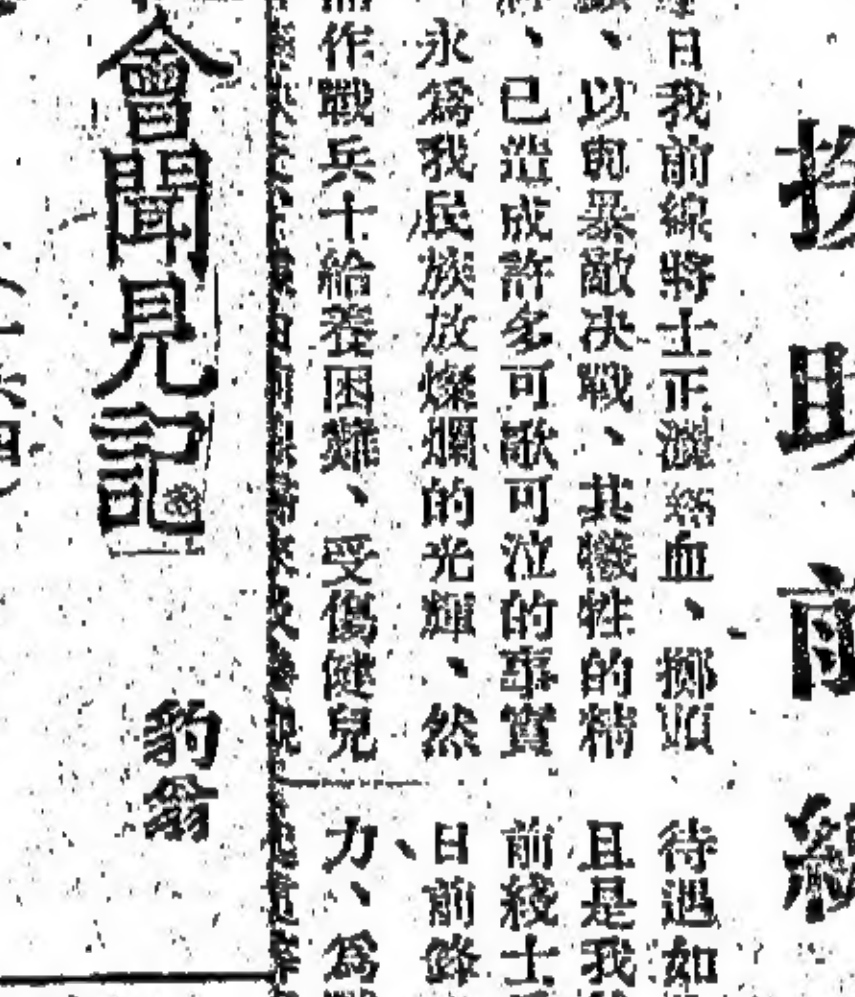 扶助前線
日我前線將士正灑熱血、擲頭
、以與暴敵决戰、其犧牲的精
、已造成許多可歌可泣的事實
永爲我民族放燦爛的光輝、然
作戰兵士給養困難、受傷健兒
待遇如
且是我
前綫士
日前鋒
力、爲
會聞見記
豹翁